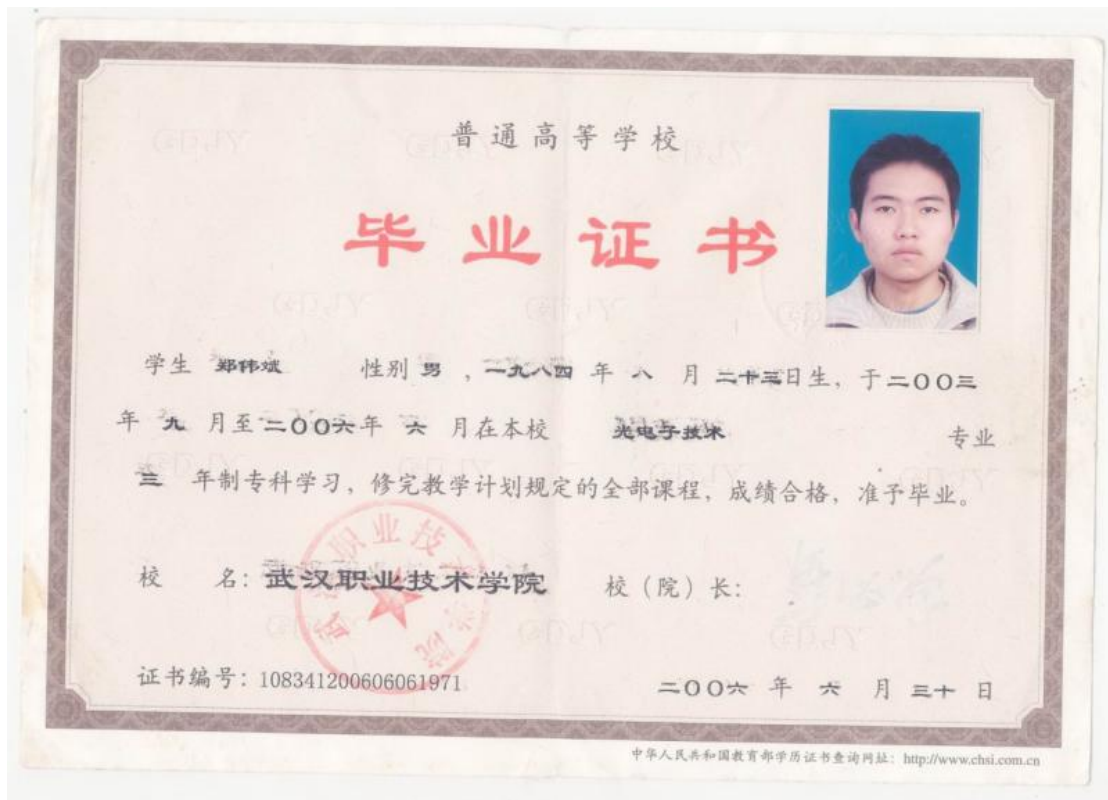 普通高等学校
毕业证书
学生 郑伟斌 性别 男 ，一九八四 年 八 月 二十三日生，于二〇〇三
年 九 月至二〇〇六年 六 月在本校 光电子技术 专业
三 年制专科学习，修完教学计划规定的全部课程，成绩合格，准予毕业。
校 名：武汉职业技术学院 校（院）长：
证书编号：108341200606061971
二〇〇六 年 六 月 三十 日
中华人民共和国教育部学历证书查询网址：http://www.chsi.com.cn
武汉职业技术学院